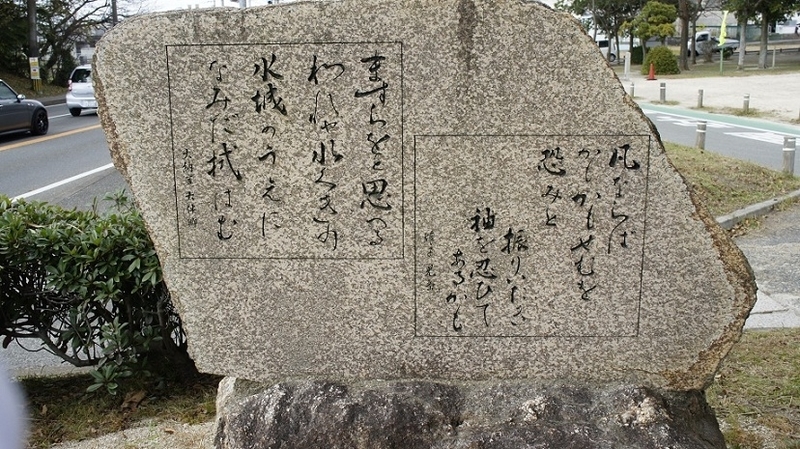 凡ならば
かもかもせむを
恐みと
振りいたき
袖を忍びて
あるかも
児島
ますらをと思へる
われや水くきの
水城のうへに
なみだ拭はむ
大納言 大伴卿